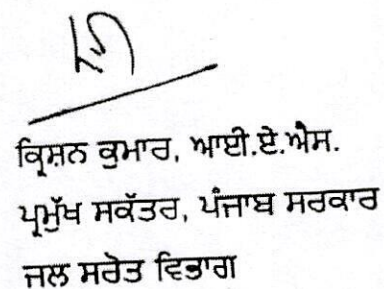 ਕ੍ਰਿਸ਼ਨ ਕੁਮਾਰ, ਆਈ.ਏ.ਐਸ.
ਪ੍ਰਮੁੱਖ ਸਕੱਤਰ, ਪੰਜਾਬ ਸਰਕਾਰ
ਜਲ ਸਰੋਤ ਵਿਭਾਗ